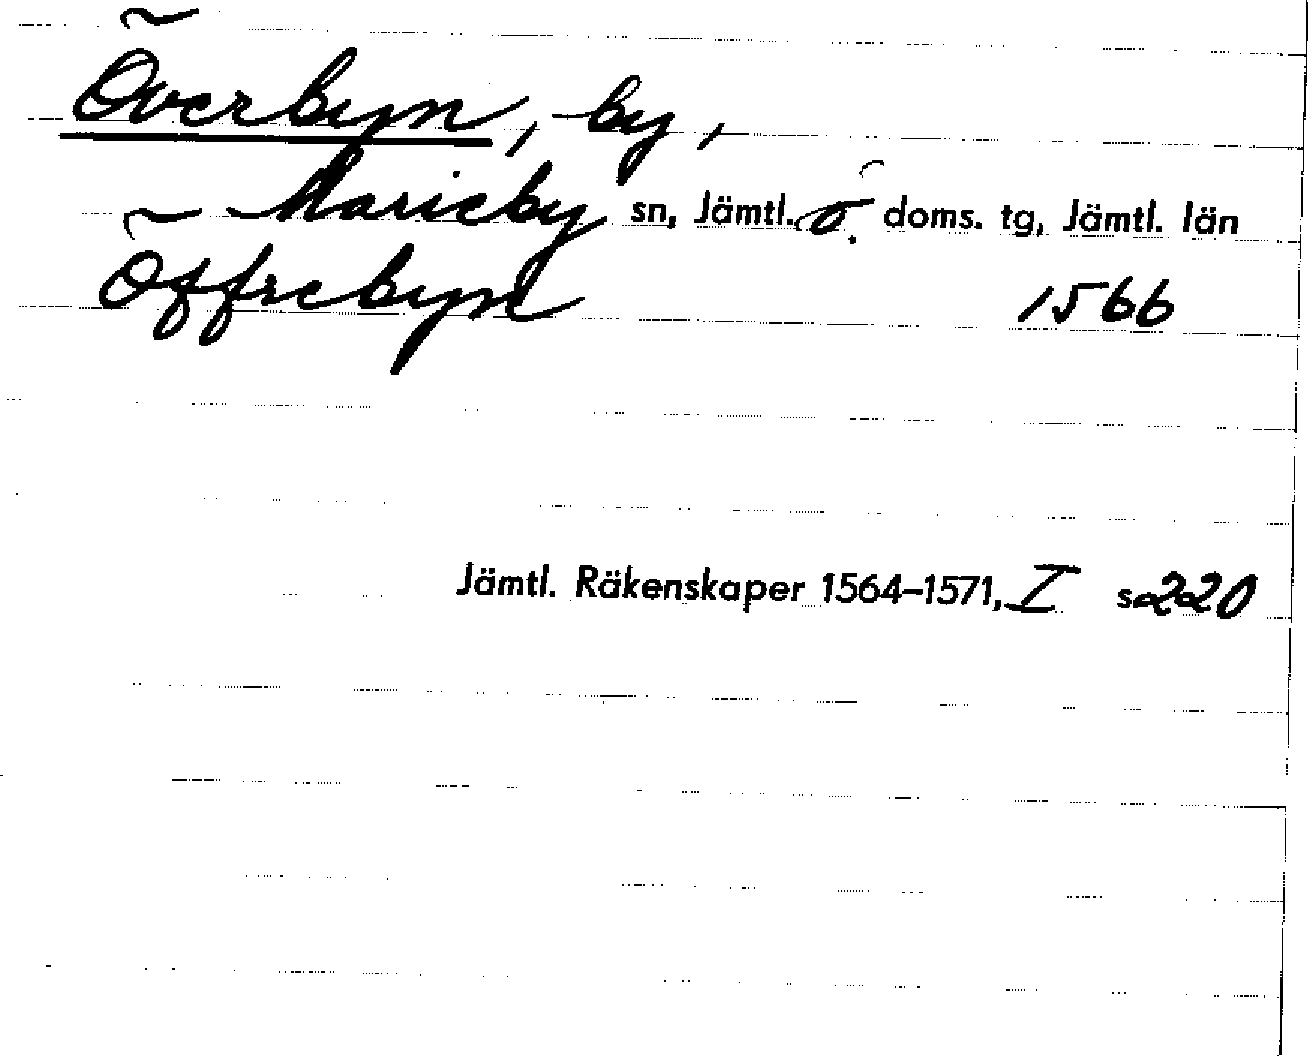 Överbyn, by,
Marieby sn, Jämtl. ö. doms. tg, Jämtl. län
Öffrebyn 1566
Jämtl. Räkenskaper 1564–1571, I s 220